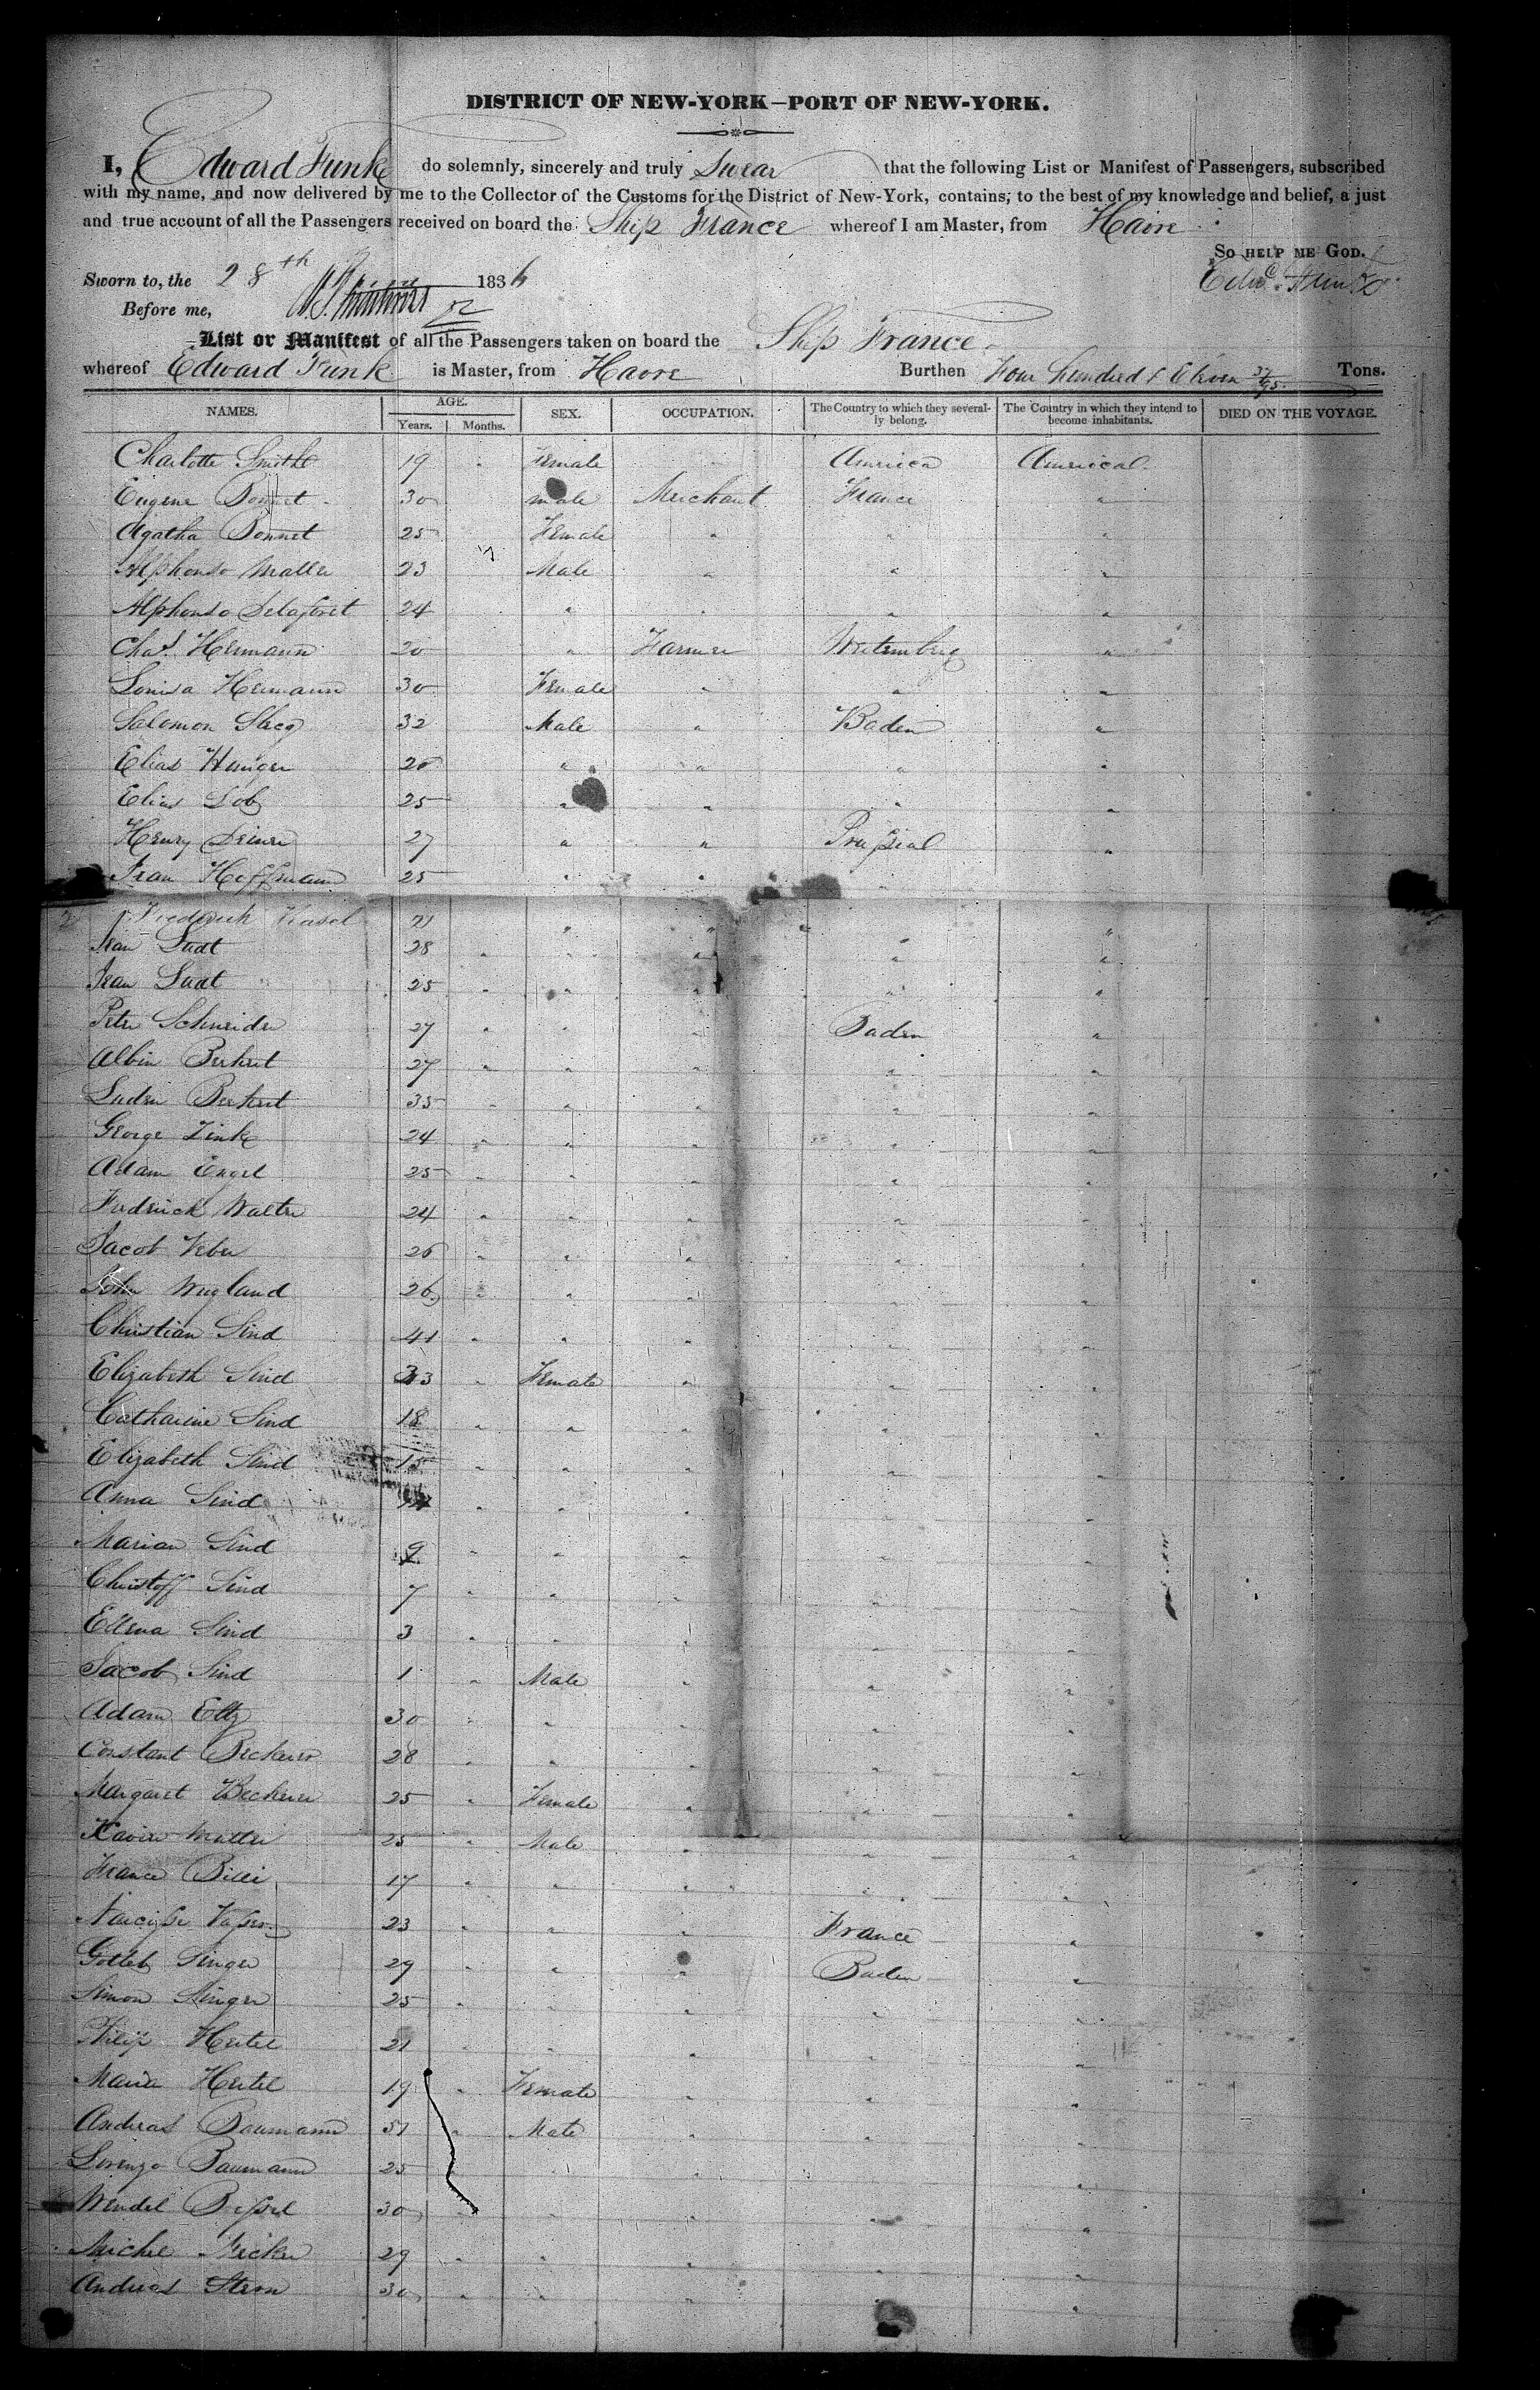 DISTRICT OF NEW-YORK—PORT OF NEW-YORK.
I, Edward Funk do solemnly, sincerely and truly Swear that the following List or Manifest of Passengers, subscribed
with my name, and now delivered by me to the Collector of the Customs for the District of New-York, contains; to the best of my knowledge and belief, a just
and true account of all the Passengers received on board the Ship France whereof I am Master, from Havre
SO HELP ME GOD.
Sworn to, the 28th 1836
Edwd. Funk
Before me,
List or Manifest of all the Passengers taken on board the Ship France
whereof Edward Funk is Master, from Havre Burthen Four hundred & Eleven 37/95 Tons.
NAMES. AGE. SEX. OCCUPATION. The Country to which they severally belong. The Country in which they intend to become inhabitants. DIED ON THE VOYAGE.
Years. Months.
Charlotte Smith 19 " Female " America America
Eugene Bonnet 30 male Merchant France "
Agatha Bonnet 25 Female " " "
Alphonso Muller 23 Male " " "
Alphonso 24 " " "
Chas. Hermann 20 " Farmer Wirtemberg "
Louisa Hermann 30 Female " " "
Salomon 32 Male " Baden "
Elias 20 " " " "
Elias Lob 25 " " " "
Henry 27 " " Prussia "
Jean Hoffmann 25 " " " "
Frederick Kasel 21 " " " "
Jean 28 " " " " "
Jean 25 " " " " "
Peter Schneider 27 " " " Baden "
Albin 27 " " " " "
35 " " " " "
George Zink 24 " " " " "
Adam Engel 25 " " " " "
Frederick Walter 24 " " " " "
Jacob Veber 26 " " " " "
John 26 " " " " "
Christian Sind 41 " " " " "
Elizabeth Sind 33 " Female " " "
Catharine Sind 18 " " " " "
Elizabeth Sind 15 " " " " "
Anna Sind " " " " "
Marian Sind 9 " " " " "
Christoff Sind 7 " " " " "
Sind 3 " " " " "
Jacob Sind 1 " Male " " "
Adam Eltz 30 " " " " "
Constant Beckerer 28 " " " " "
Margaret Beckerer 25 " Female " " "
Xavier Muller 25 " Male " " "
17 " " " " "
Narcisse 23 " " " France "
Gotleb Singer 29 " " " Baden "
Simon Singer 25 " " " " "
Philip Hertel 21 " " " " "
Maria Hertel 19 " Female " " "
Andreas Baumann 51 " Male " " "
Lorenzo Baumann 25 " " " " "
Wendel 30 " " " " "
Michel 29 " " " " "
Andreas Stern 30 " " " " "